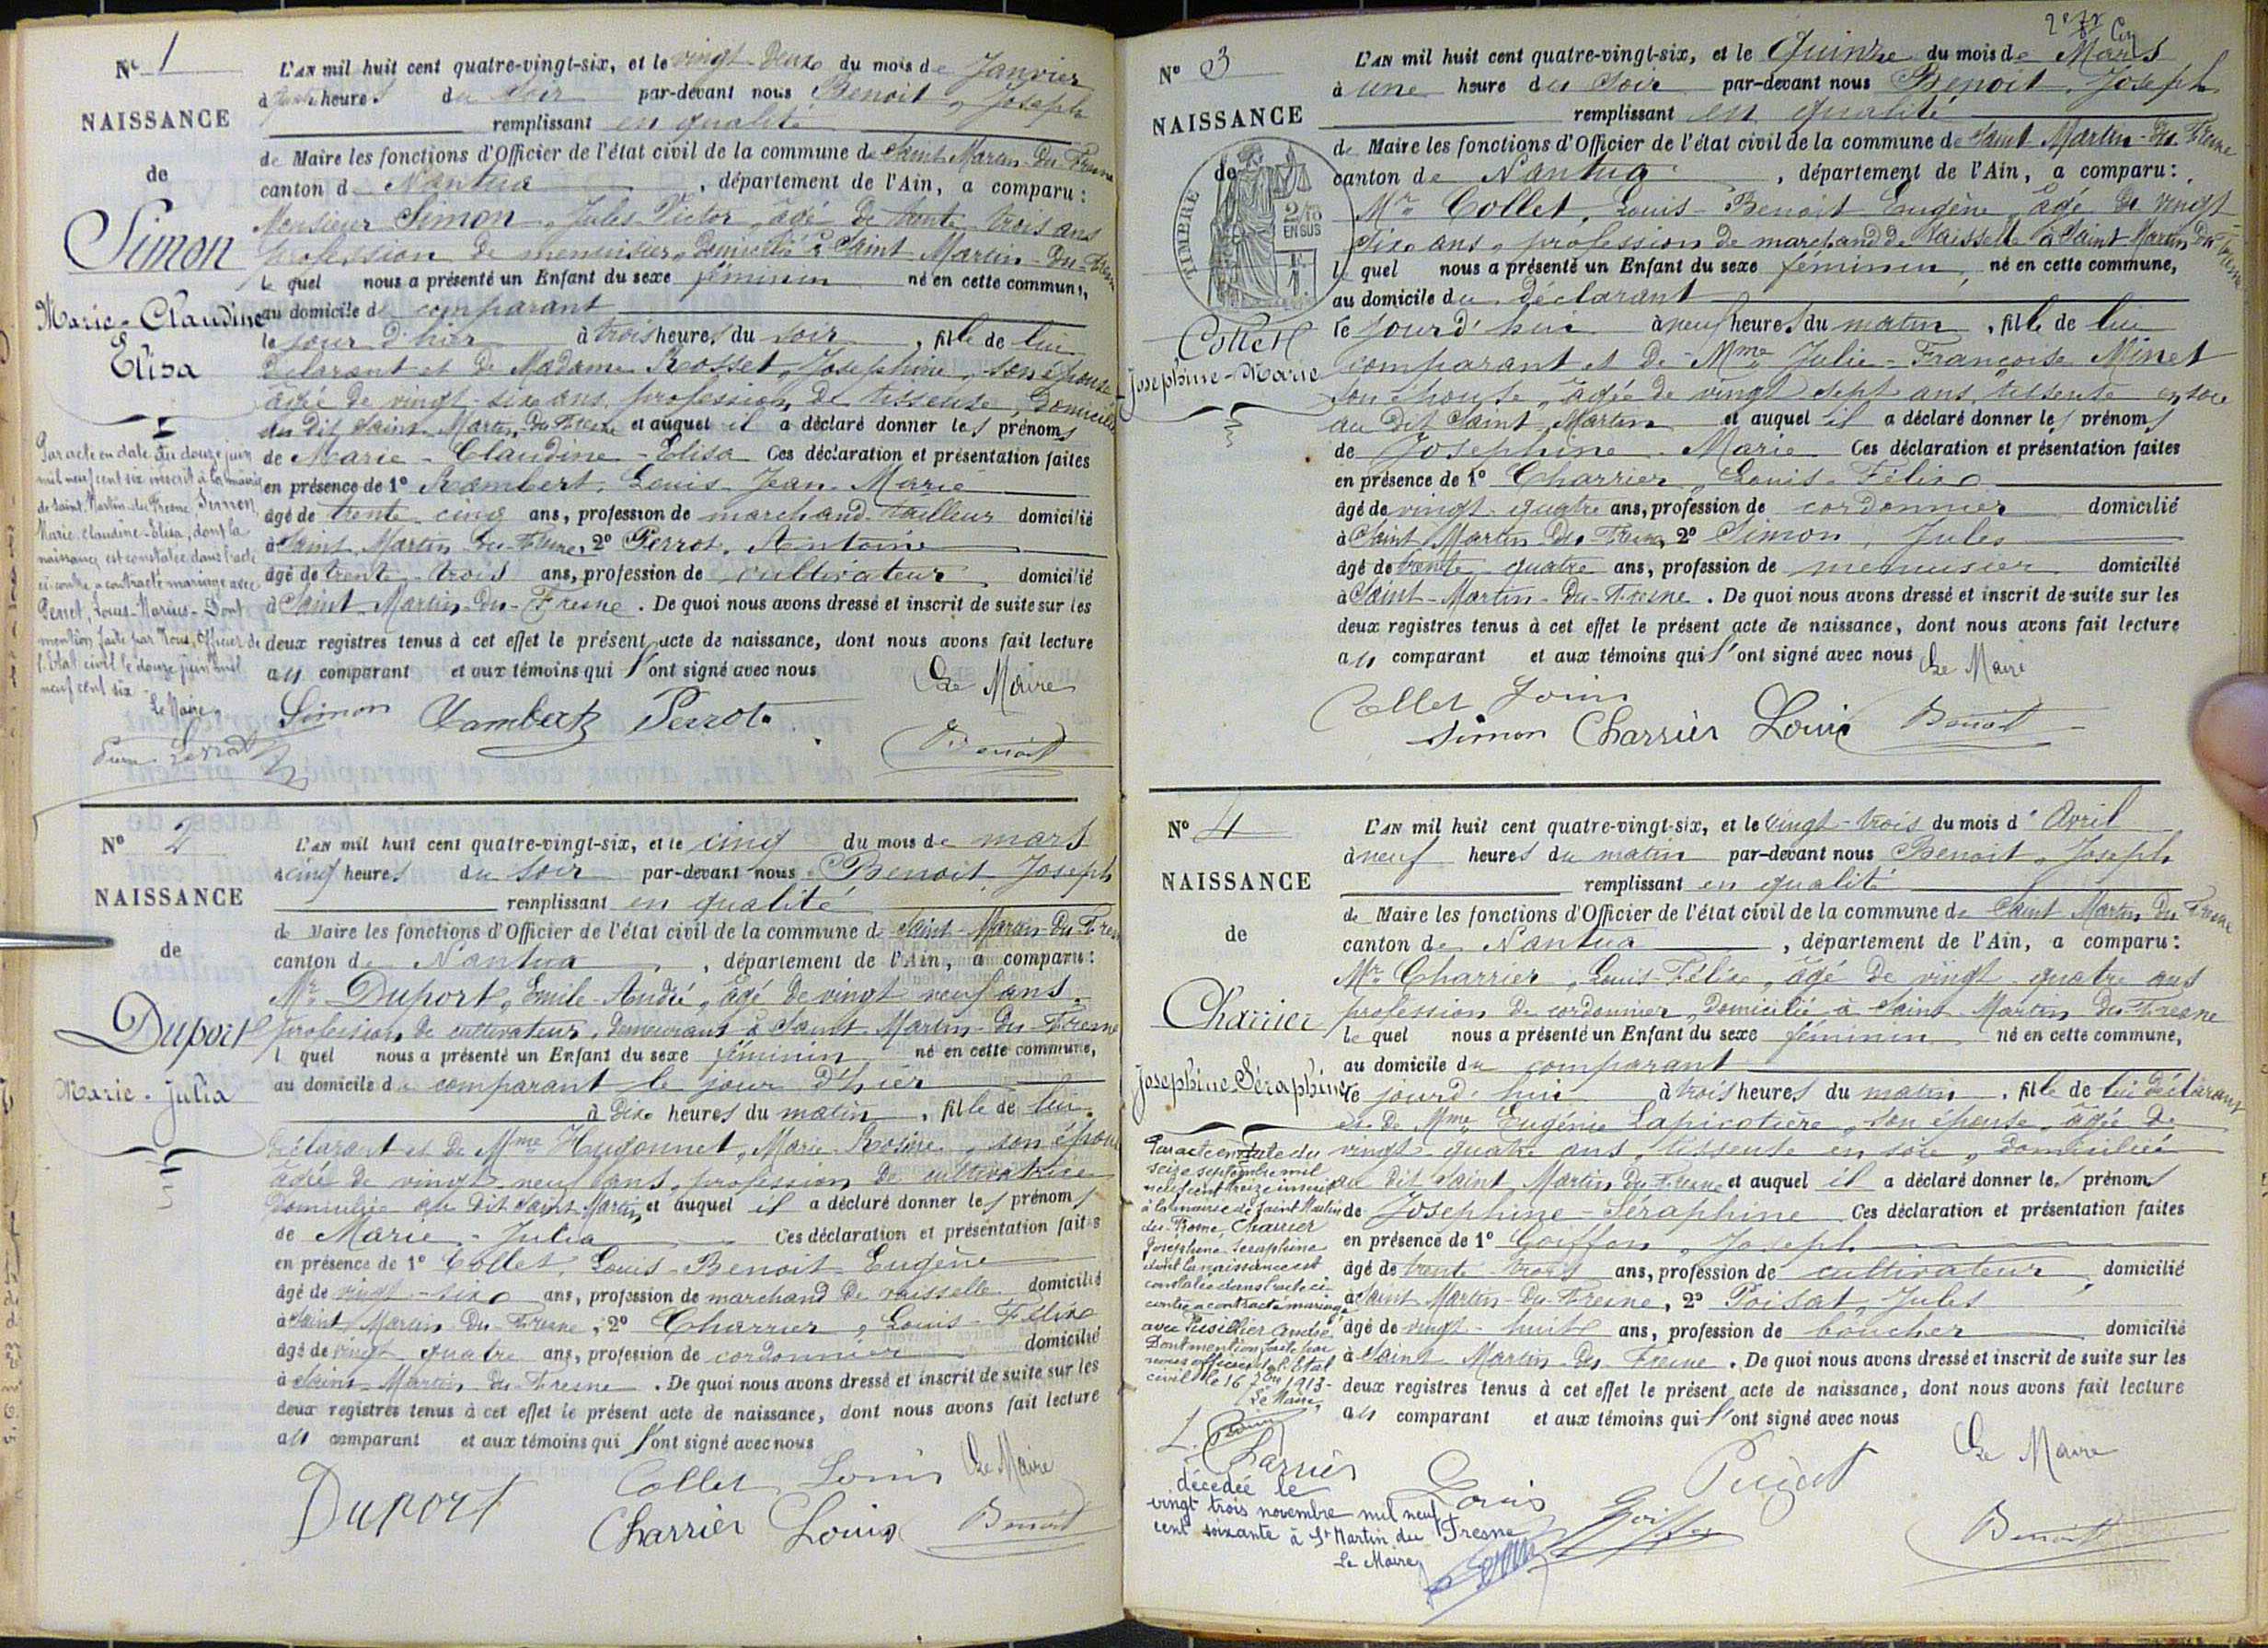 N° 1
NAISSANCE
de
Simon
Marie-Claudine
Elisa
Par acte en date du douze juin
mil neuf cent six inscrit à la mairie
de Saint Martin-du-Fresne, Simon,
Marie-Claudine-Elisa, dont la
naissance est constatée dans l'acte
ci-contre a contracté mariage avec
Louis-Marius - Dont
mention faite par Nous, Officier de
l'Etat civil le douze juin mil
neuf cent six
Le Maire,
L'AN mil huit cent quatre-vingt-six, et le vingt-deux du mois de Janvier
à heures du soir par-devant nous Benoit, Joseph
remplissant en qualité
de Maire les fonctions d'Officier de l'état civil de la commune de Saint-Martin-du-Fresne
canton de Nantua, département de l'Ain, a comparu :
Monsieur Simon, Jules-Victor, âgé de trente-trois ans
profession de menuisier, domicilié à Saint-Martin-du-Fresne
le quel nous a présenté un Enfant du sexe féminin né en cette commune,
au domicile du comparant
le jour d'hier à trois heures du soir, fille de lui
déclarant et de Madame Rosset, Josephine, son épouse
âgée de vingt-six ans, profession de tisseuse, domiciliée
au dit Saint-Martin-du-Fresne et auquel il a déclaré donner les prénoms
de Marie-Claudine-Elisa Ces déclaration et présentation faites
en présence de 1° Rambert, Louis-Jean-Marie
âgé de trente-cinq ans, profession de marchand-tailleur domicilié
à Saint-Martin-du-Fresne, 2° Perrot, Antoine
âgé de trente-trois ans, profession de cultivateur domicilié
à Saint-Martin-du-Fresne. De quoi nous avons dressé et inscrit de suite sur les
deux registres tenus à cet effet le présent acte de naissance, dont nous avons fait lecture
au comparant et aux témoins qui l'ont signé avec nous
Le Maire
Simon Rambert Perrot
Benoit
N° 2
NAISSANCE
de
Duport
Marie-Julia
L'AN mil huit cent quatre-vingt-six, et le cinq du mois de mars
à cinq heures du soir par-devant nous Benoit, Joseph
remplissant en qualité
de Maire les fonctions d'Officier de l'état civil de la commune de Saint-Martin-du-Fresne
canton de Nantua, département de l'Ain, a comparu :
Mr Duport, Emile-André, âgé de vingt-neuf ans,
profession de cultivateur, demeurant à Saint-Martin-du-Fresne
l quel nous a présenté un Enfant du sexe féminin né en cette commune,
au domicile du comparant le jour d'hier
à dix heures du matin, fille de lui
déclarant et de Mme Hugonnet, Marie-Rosine, son épouse
âgée de vingt-neuf ans, profession de cultivatrice
domiciliée au dit Saint-Martin et auquel il a déclaré donner les prénoms
de Marie-Julia Ces déclaration et présentation faites
en présence de 1° Collet, Louis-Benoit-Eugène
âgé de vingt-six ans, profession de marchand de vaisselle domicilié
à Saint-Martin-du-Fresne, 2° Charrier, Louis-Félix
âgé de vingt-quatre ans, profession de cordonnier domicilié
à Saint-Martin-du-Fresne. De quoi nous avons dressé et inscrit de suite sur les
deux registres tenus à cet effet le présent acte de naissance, dont nous avons fait lecture
au comparant et aux témoins qui l'ont signé avec nous
Le Maire
Duport Collet Louis
Charrier Louis Benoit
N° 3
NAISSANCE
de
TIMBRE
2/10 EN SUS
Collet
Josephine-Marie
L'AN mil huit cent quatre-vingt-six, et le Quinze du mois de Mars
à une heure du soir par-devant nous Benoit, Joseph
remplissant en qualité
de Maire les fonctions d'Officier de l'état civil de la commune de Saint-Martin-du-Fresne
canton de Nantua, département de l'Ain, a comparu :
Mr Collet, Louis-Benoit-Eugène, âgé de vingt-
six ans, profession de marchand de vaisselle à Saint-Martin-du-Fresne
le quel nous a présenté un Enfant du sexe féminin, né en cette commune,
au domicile du déclarant
le jourd'hui à neuf heures du matin, fille de lui
comparant et de Mme Julie-Françoise Minet
son épouse, âgée de vingt-sept ans, tisseuse en soie
au dit Saint Martin et auquel il a déclaré donner les prénoms
de Josephine-Marie Ces déclaration et présentation faites
en présence de 1° Charrier, Louis-Félix
âgé de vingt-quatre ans, profession de cordonnier domicilié
à Saint-Martin-du-Fresne, 2° Simon, Jules
âgé de trente-quatre ans, profession de menuisier domicilié
à Saint-Martin-du-Fresne. De quoi nous avons dressé et inscrit de suite sur les
deux registres tenus à cet effet le présent acte de naissance, dont nous avons fait lecture
au comparant et aux témoins qui l'ont signé avec nous
Le Maire
Collet Louis
Simon Charrier Louis Benoit
N° 4
NAISSANCE
de
Charrier
Josephine Séraphine
Par acte en date du
seize septembre mil
neuf cent treize inscrit
à la mairie de Saint Martin
du Fresne, Charrier
Josephine Seraphine
dont la naissance est
constatée dans l'acte ci-
contre a contracté mariage
avec André
Dont mention faite par
nous officier de l'Etat
civil le 16 7bre 1913-
Le Maire,
décédée le
vingt trois novembre mil neuf
cent soixante à St Martin du Fresne
Le Maire,
L'AN mil huit cent quatre-vingt-six, et le vingt-trois du mois d'Avril
à neuf heures du matin par-devant nous Benoit, Joseph
remplissant en qualité
de Maire les fonctions d'Officier de l'état civil de la commune de Saint-Martin-du-Fresne
canton de Nantua, département de l'Ain, a comparu :
Mr Charrier, Louis-Félix, âgé de vingt-quatre ans
profession de cordonnier, domicilié à Saint-Martin-du-Fresne
le quel nous a présenté un Enfant du sexe féminin né en cette commune,
au domicile du comparant
le jourd'hui à trois heures du matin, fille de lui déclarant
et de Mme Eugénie Lapicotière, son épouse, âgée de
vingt-quatre ans, tisseuse en soie, domiciliée
au dit Saint-Martin-du-Fresne et auquel il a déclaré donner les prénoms
de Josephine-Séraphine Ces déclaration et présentation faites
en présence de 1° Goiffon, Joseph
âgé de trente-trois ans, profession de cultivateur, domicilié
à Saint-Martin-du-Fresne, 2° Poisat, Jules
âgé de vingt-huit ans, profession de boucher domicilié
à Saint-Martin-du-Fresne. De quoi nous avons dressé et inscrit de suite sur les
deux registres tenus à cet effet le présent acte de naissance, dont nous avons fait lecture
au comparant et aux témoins qui l'ont signé avec nous
Le Maire
Charrier Louis
Goiffon
Benoit